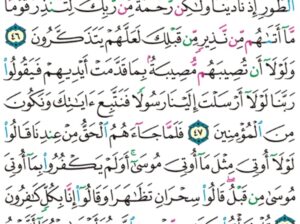 ٱلطُّورِ إِذْ نَادَيْنَا وَلَٰكِن رَّحْمَةً مِّن رَّبِّكَ لِتُنذِرَ قَوْمًا
مَّآ أَتَىٰهُم مِّن نَّذِيرٍ مِّن قَبْلِكَ لَعَلَّهُمْ يَتَذَكَّرُونَ ٤٦
وَلَوْلَآ أَن تُصِيبَهُم مُّصِيبَةٌۢ بِمَا قَدَّمَتْ أَيْدِيهِمْ فَيَقُولُوا۟
رَبَّنَا لَوْلَآ أَرْسَلْتَ إِلَيْنَا رَسُولًا فَنَتَّبِعَ ءَايَٰتِكَ وَنَكُونَ
مِنَ ٱلْمُؤْمِنِينَ ٤٧ فَلَمَّا جَآءَهُمُ ٱلْحَقُّ مِنْ عِندِنَا قَالُوا۟
لَوْلَآ أُوتِىَ مِثْلَ مَآ أُوتِىَ مُوسَىٰٓ ۚ أَوَلَمْ يَكْفُرُوا۟ بِمَآ أُوتِىَ
مُوسَىٰ مِن قَبْلُ ۖ قَالُوا۟ سِحْرَانِ تَظَٰهَرَا وَقَالُوٓا۟ إِنَّا بِكُلٍّ كَٰفِرُونَ